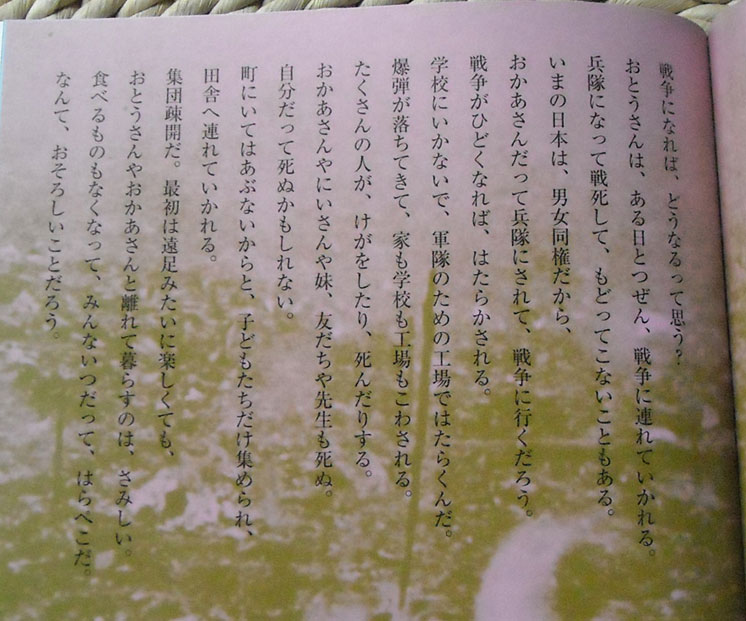 戦争になれば、どうなるって思う?
おとうさんは、ある日とつぜん、戦争に連れていかれる。
兵隊になって戦死して、もどってこないこともある。
いまの日本は、男女同権だから、
おかあさんだって兵隊にされて、戦争に行くだろう。
戦争がひどくなれば、はたらかされる。
学校にいかないで、軍隊のための工場ではたらくんだ。
爆弾が落ちてきて、家も学校も工場もこわされる。
たくさんの人が、けがをしたり、死んだりする。
おかあさんやにいさんや妹、友だちや先生も死ぬ。
自分だって死ぬかもしれない。
町にいてはあぶないからと、子どもたちだけ集められ、
田舎へ連れていかれる。
集団疎開だ。最初は遠足みたいに楽しくても、
おとうさんやおかあさんと離れて暮らすのは、さみしい。
食べるものもなくなって、みんないつだって、はらぺこだ。
なんて、おそろしいことだろう。